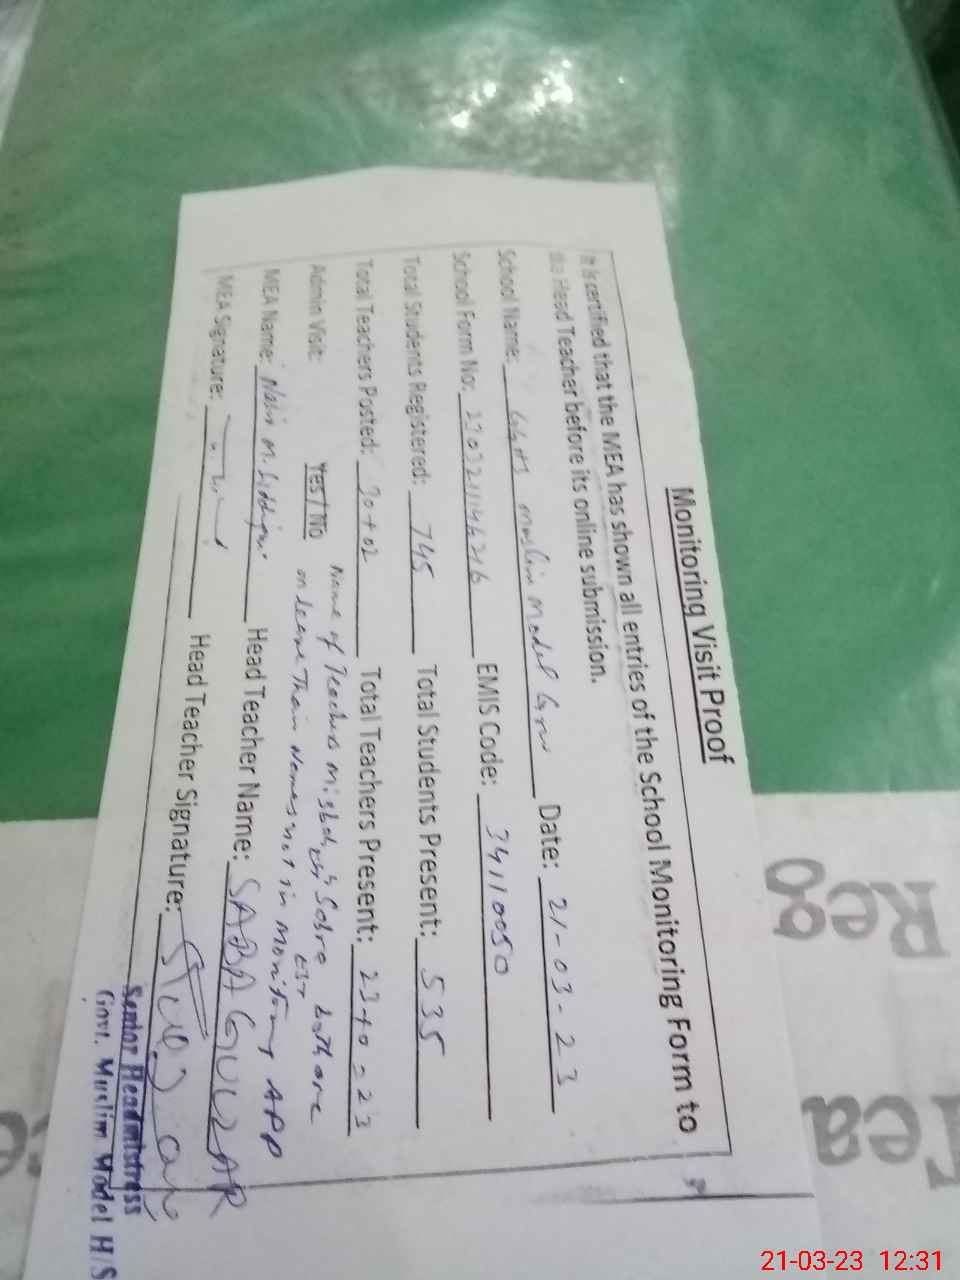 Monitoring Visit Proof
It is certified that the MEA has shown all entries of the School Monitoring Form to
the Head Teacher before its online submission.
School Name: GGHS Muslim Model Grw Date: 21-03-23
School Form No: EMIS Code: 34110050
Total Students Registered: 745 Total Students Present: 535
Total Teachers Posted: 30+02 Total Teachers Present: 23+0=23
Admin Visit: Yes / No Name of Teachers Misbah EST Sobra EST both are
on leave Their Names not in Monitoring APP
MEA Name: Head Teacher Name: SABA GULZAR
MEA Signature: Head Teacher Signature:
Senior Headmistress
Govt. Muslim Model H/S
Reg
Tea
21-03-23 12:31